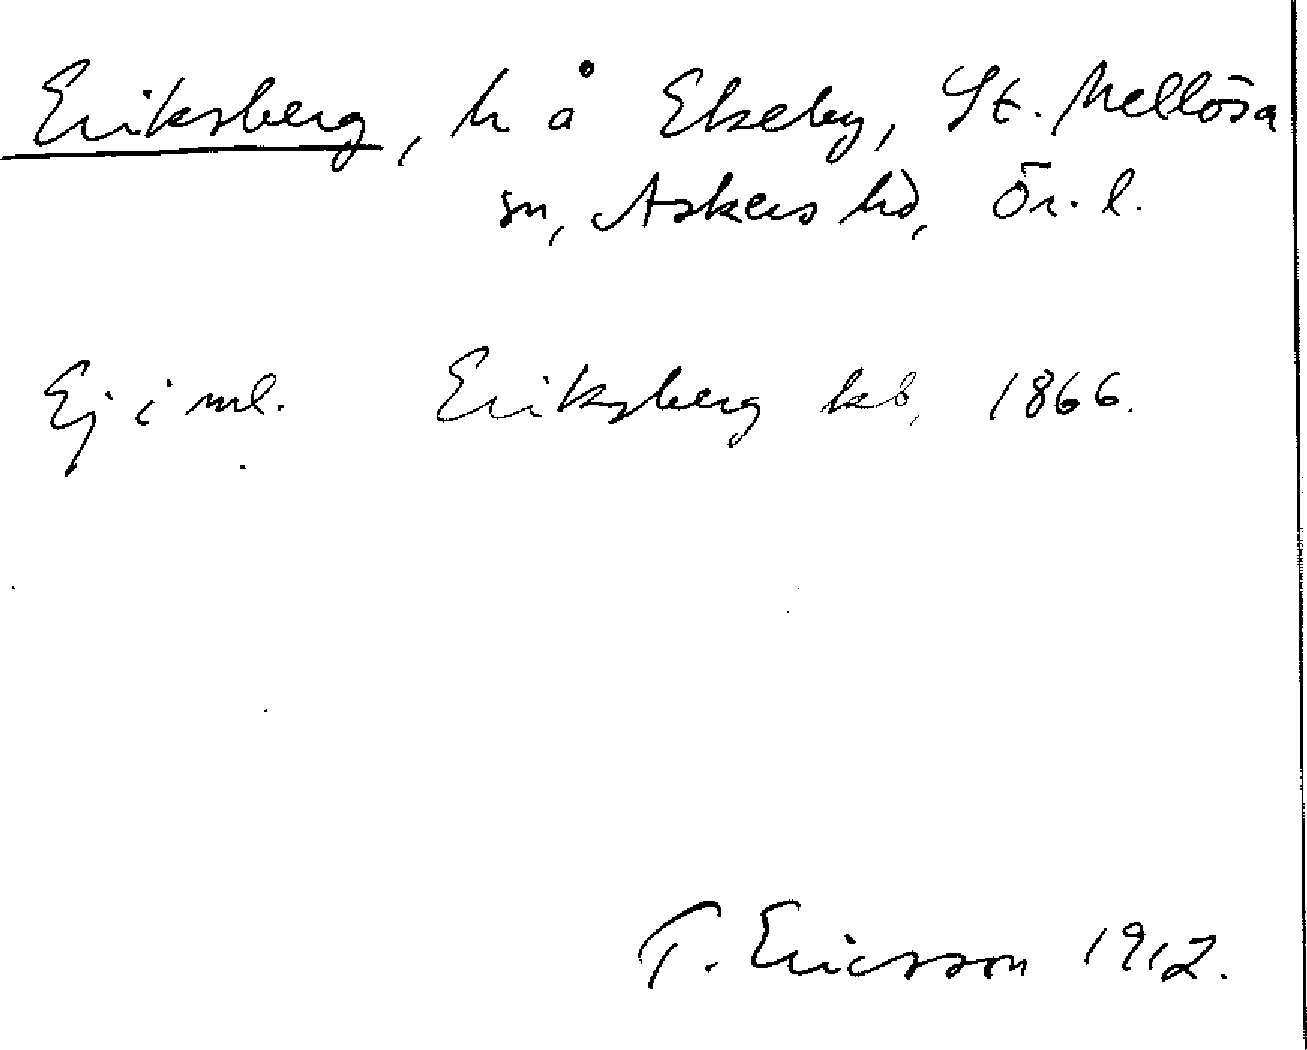 Eriksberg, h å Ekeby, St. Mellösa
sn, Askers hd, Ör. l.
Ej i ml. Eriksberg kb, 1866.
T. Ericsson 1912.